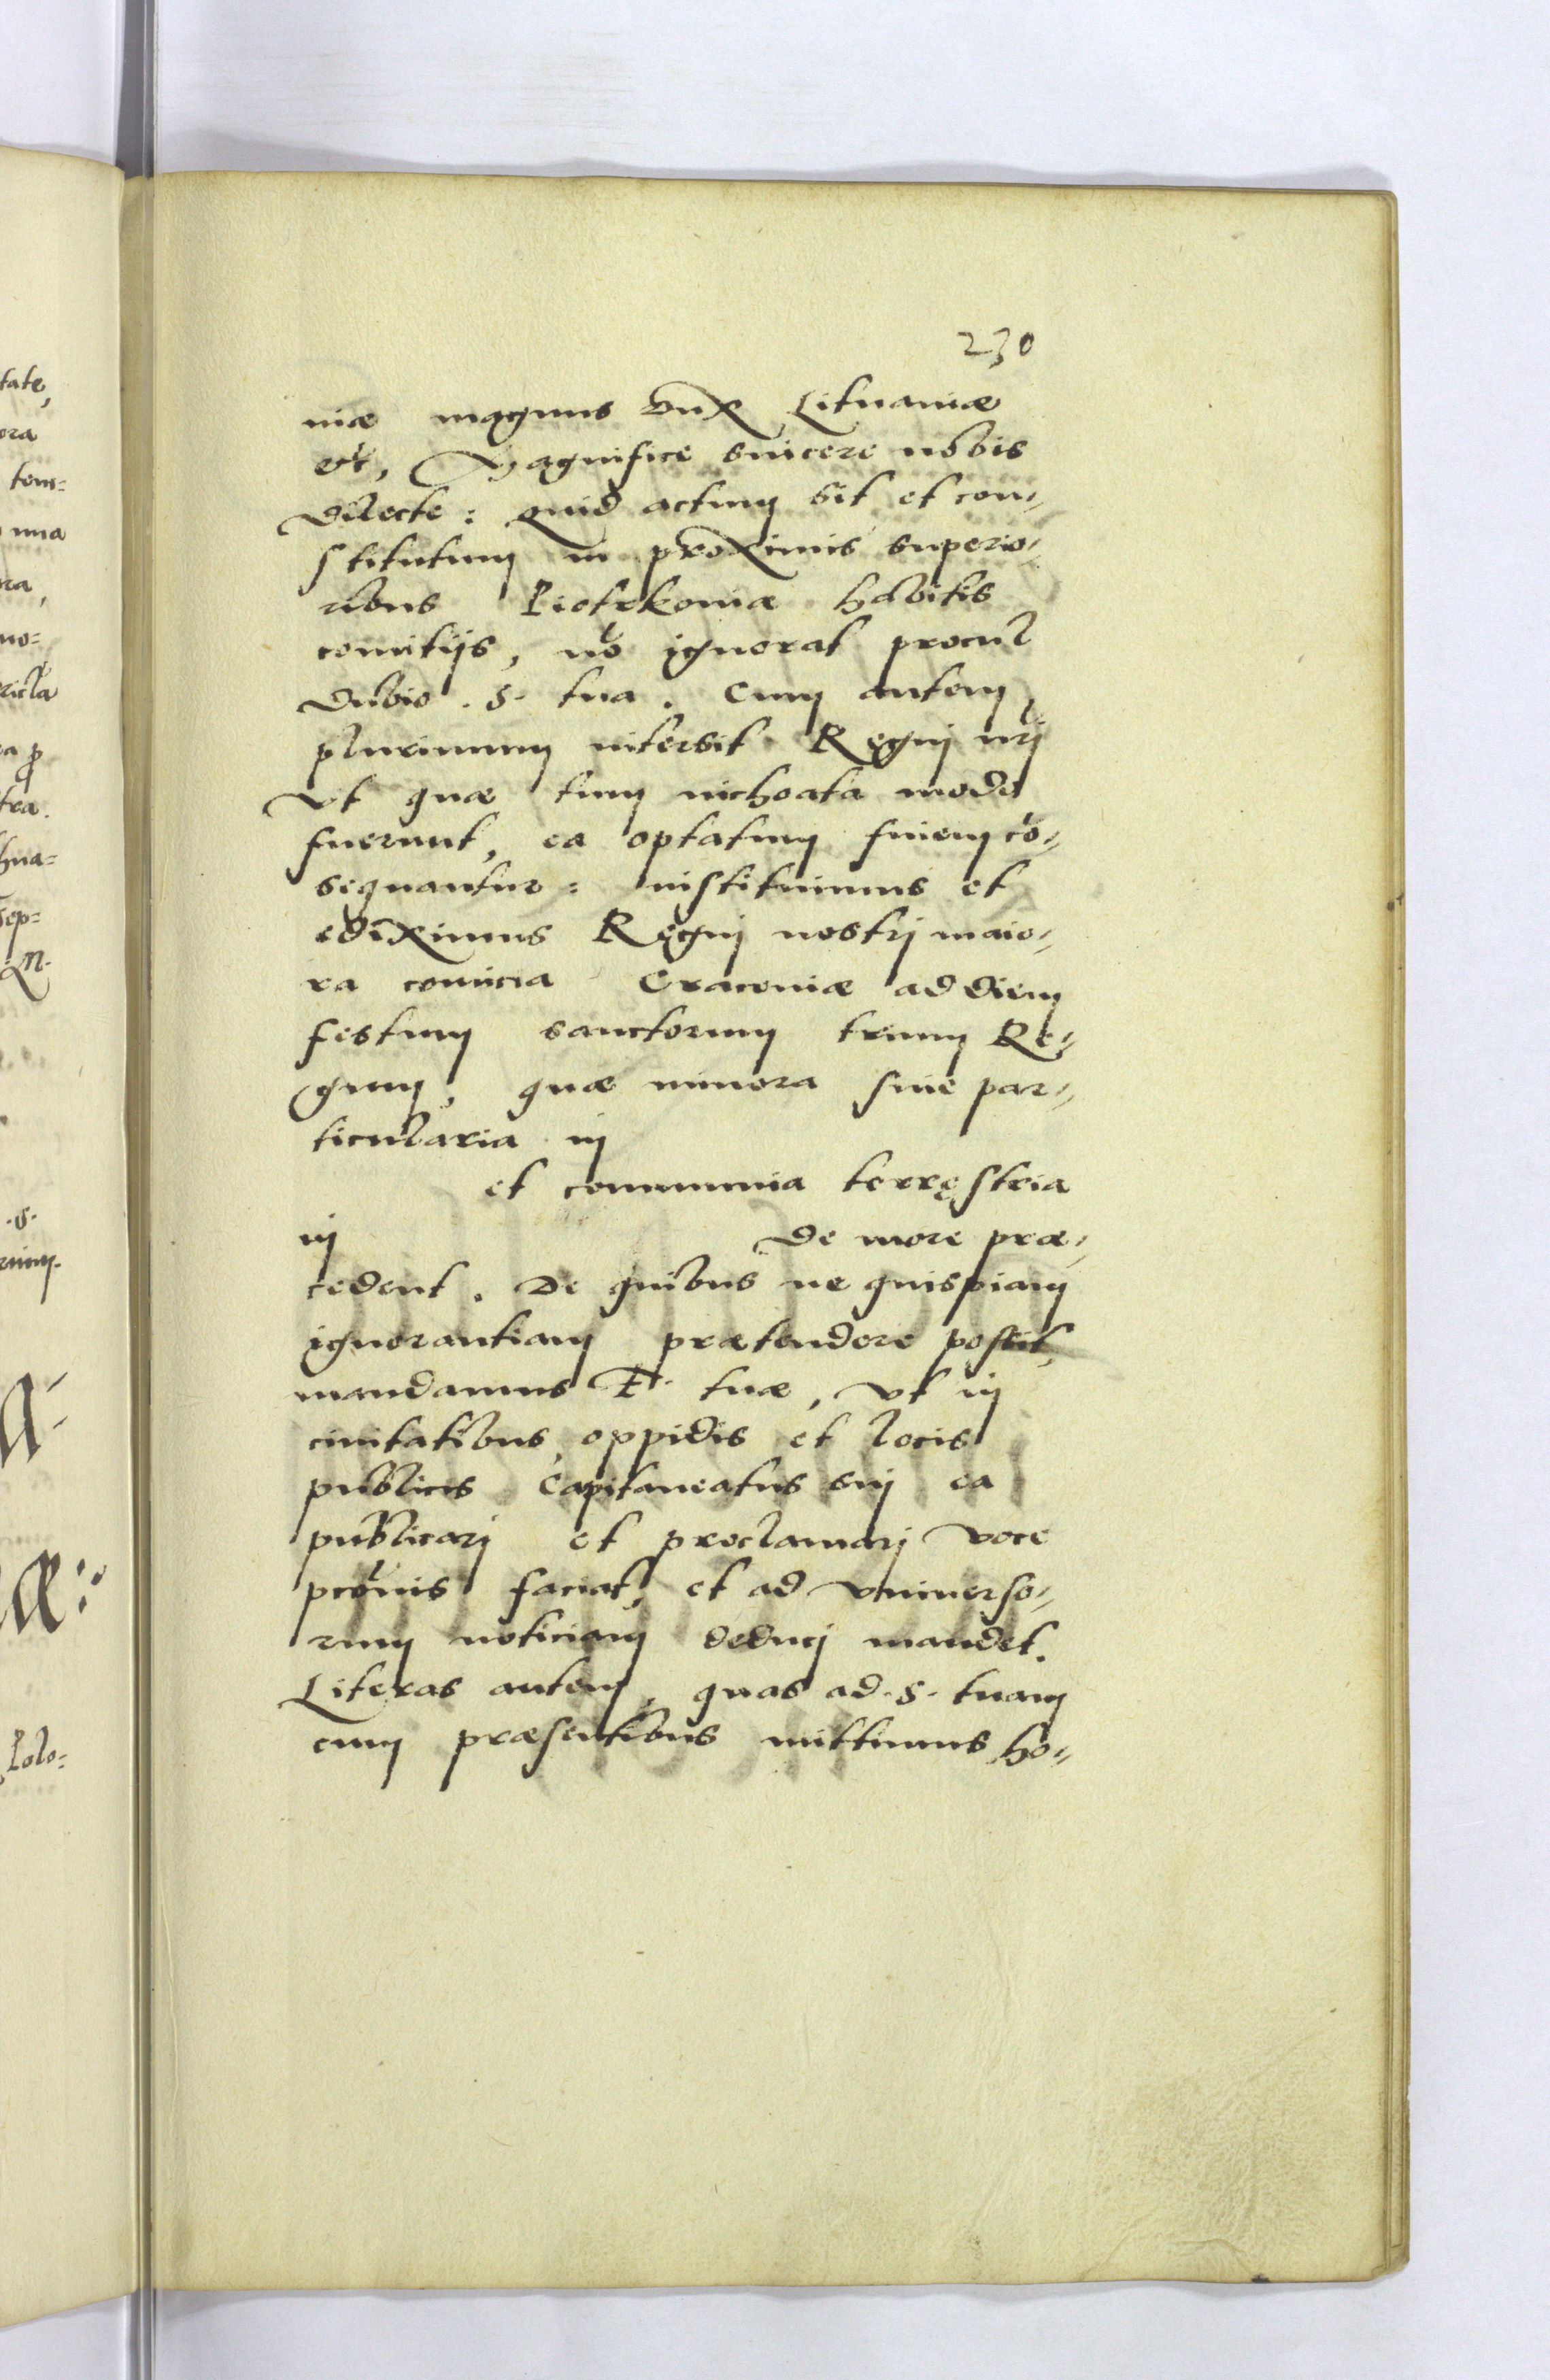 230
niæ magnus dux Lituaniæ
etc, Magnifice syncere nobis
dilecte: quid actum sit et con=
stitutum in proximis superio=
ribus Piotrkoviæ habitis
comitijs, nõ ignorat procul
dubio .S. tua. Cum autem
plurimum intersit Regnj nrj̃
vt quæ tum inchoata modo
fuerunt, ea optatum finem cõ=
sequantur: instituimus et
ediximus Regnj nostrj maio=
ra comicia Cracoviæ ad diem
festum sanctorum trium Re=
gum, quæ minora siue par=
ticularia in
et communia terrestria
in de more præ=
cedent. De quibus ne quispiam
ignorantiam prætendere possit,
mandamus F. tuæ, vt in
ciuitatibus, oppidis et locis
publicis Capitaneatus suj ea
publicarj et proclamarj voce
pcõnis faciat, et ad vniuerso=
rum noticiam deducj mandet.
Literas autem, quas ad .S. tuam
cum præsentibus mittimus ho=
tate,
ora
tem=
mo=
ricla
tra.
Sep=
.S.
Polo=